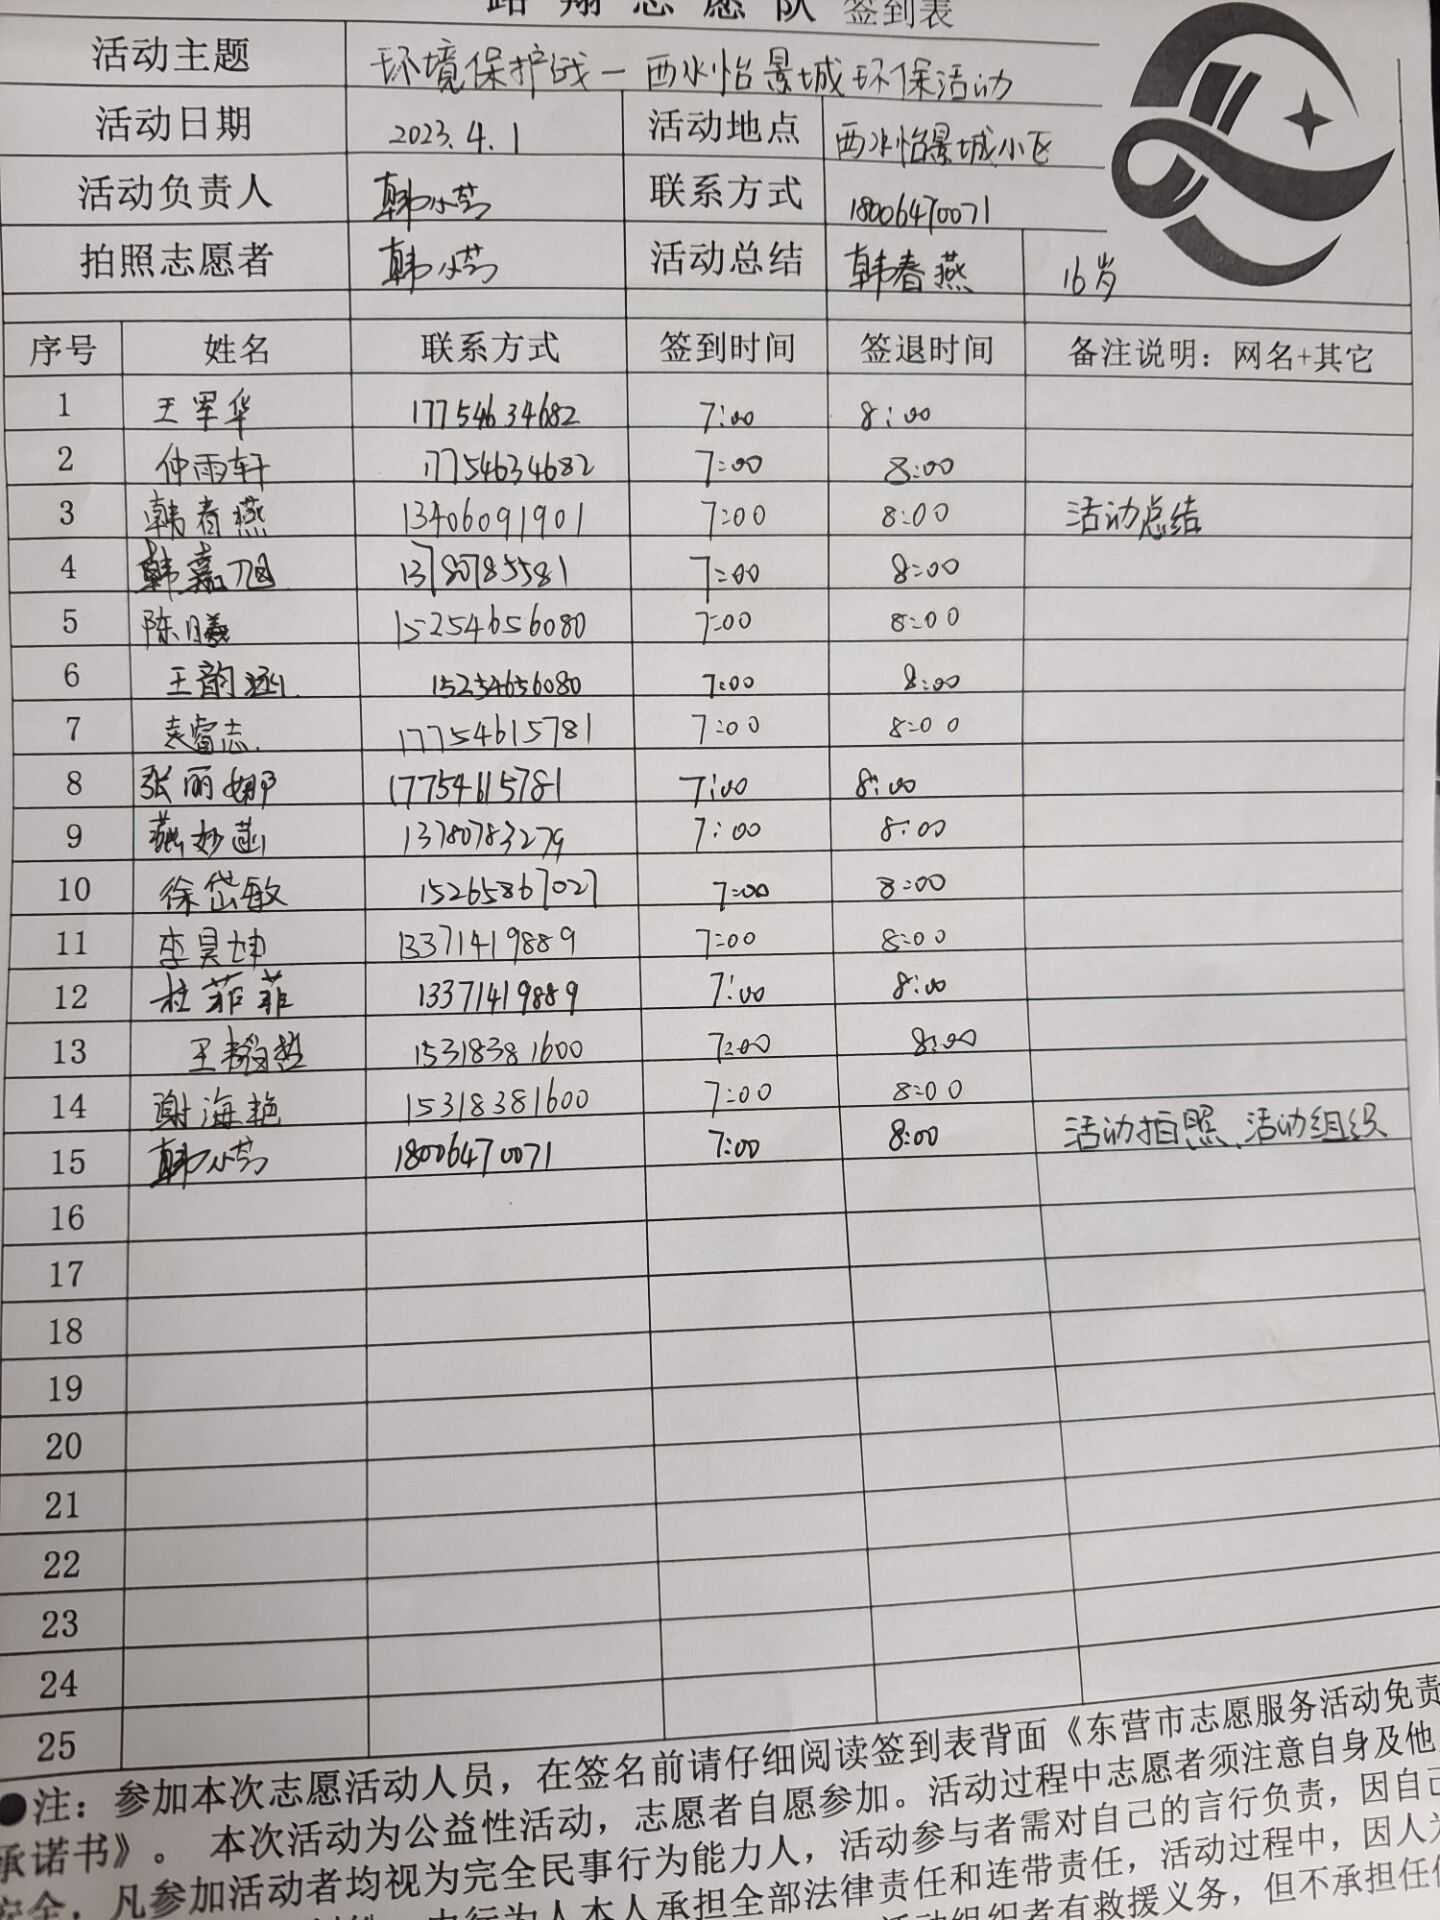 路翔志愿队 签到表
活动主题 环境保护战一西水怡景城环保活动
活动日期 2023.4.1 活动地点 西水怡景城小区
活动负责人 韩小芳 联系方式 18006470071
拍照志愿者 韩小芳 活动总结 韩春燕 16岁
序号 姓名 联系方式 签到时间 签退时间 备注说明：网名+其它
1 王军华 17754634682 7:00 8:00
2 仲雨轩 17754634682 7:00 8:00
3 韩春燕 13406091901 7:00 8:00 活动总结
4 韩嘉旭 13780785581 7:00 8:00
5 陈曦 15254656080 7:00 8:00
6 王韵涵 15254656080 7:00 8:00
7 袁睿志 17754615781 7:00 8:00
8 张丽娜 17754615781 7:00 8:00
9 燕妙菡 13780783279 7:00 8:00
10 徐岱敏 15265867027 7:00 8:00
11 李昊坤 13371419889 7:00 8:00
12 杜菲菲 13371419889 7:00 8:00
13 王毅哲 15318381600 7:00 8:00
14 谢海艳 15318381600 7:00 8:00
15 韩小芳 18006470071 7:00 8:00 活动拍照、活动组织
16
17
18
19
20
21
22
23
24
25
●注：参加本次志愿活动人员，在签名前请仔细阅读签到表背面《东营市志愿服务活动免责
承诺书》。本次活动为公益性活动，志愿者自愿参加。活动过程中志愿者须注意自身及他
安全，凡参加活动者均视为完全民事行为能力人，活动参与者需对自己的言行负责，因自己
由行为人本人承担全部法律责任和连带责任，活动过程中，因人为
活动组织者有救援义务，但不承担任何